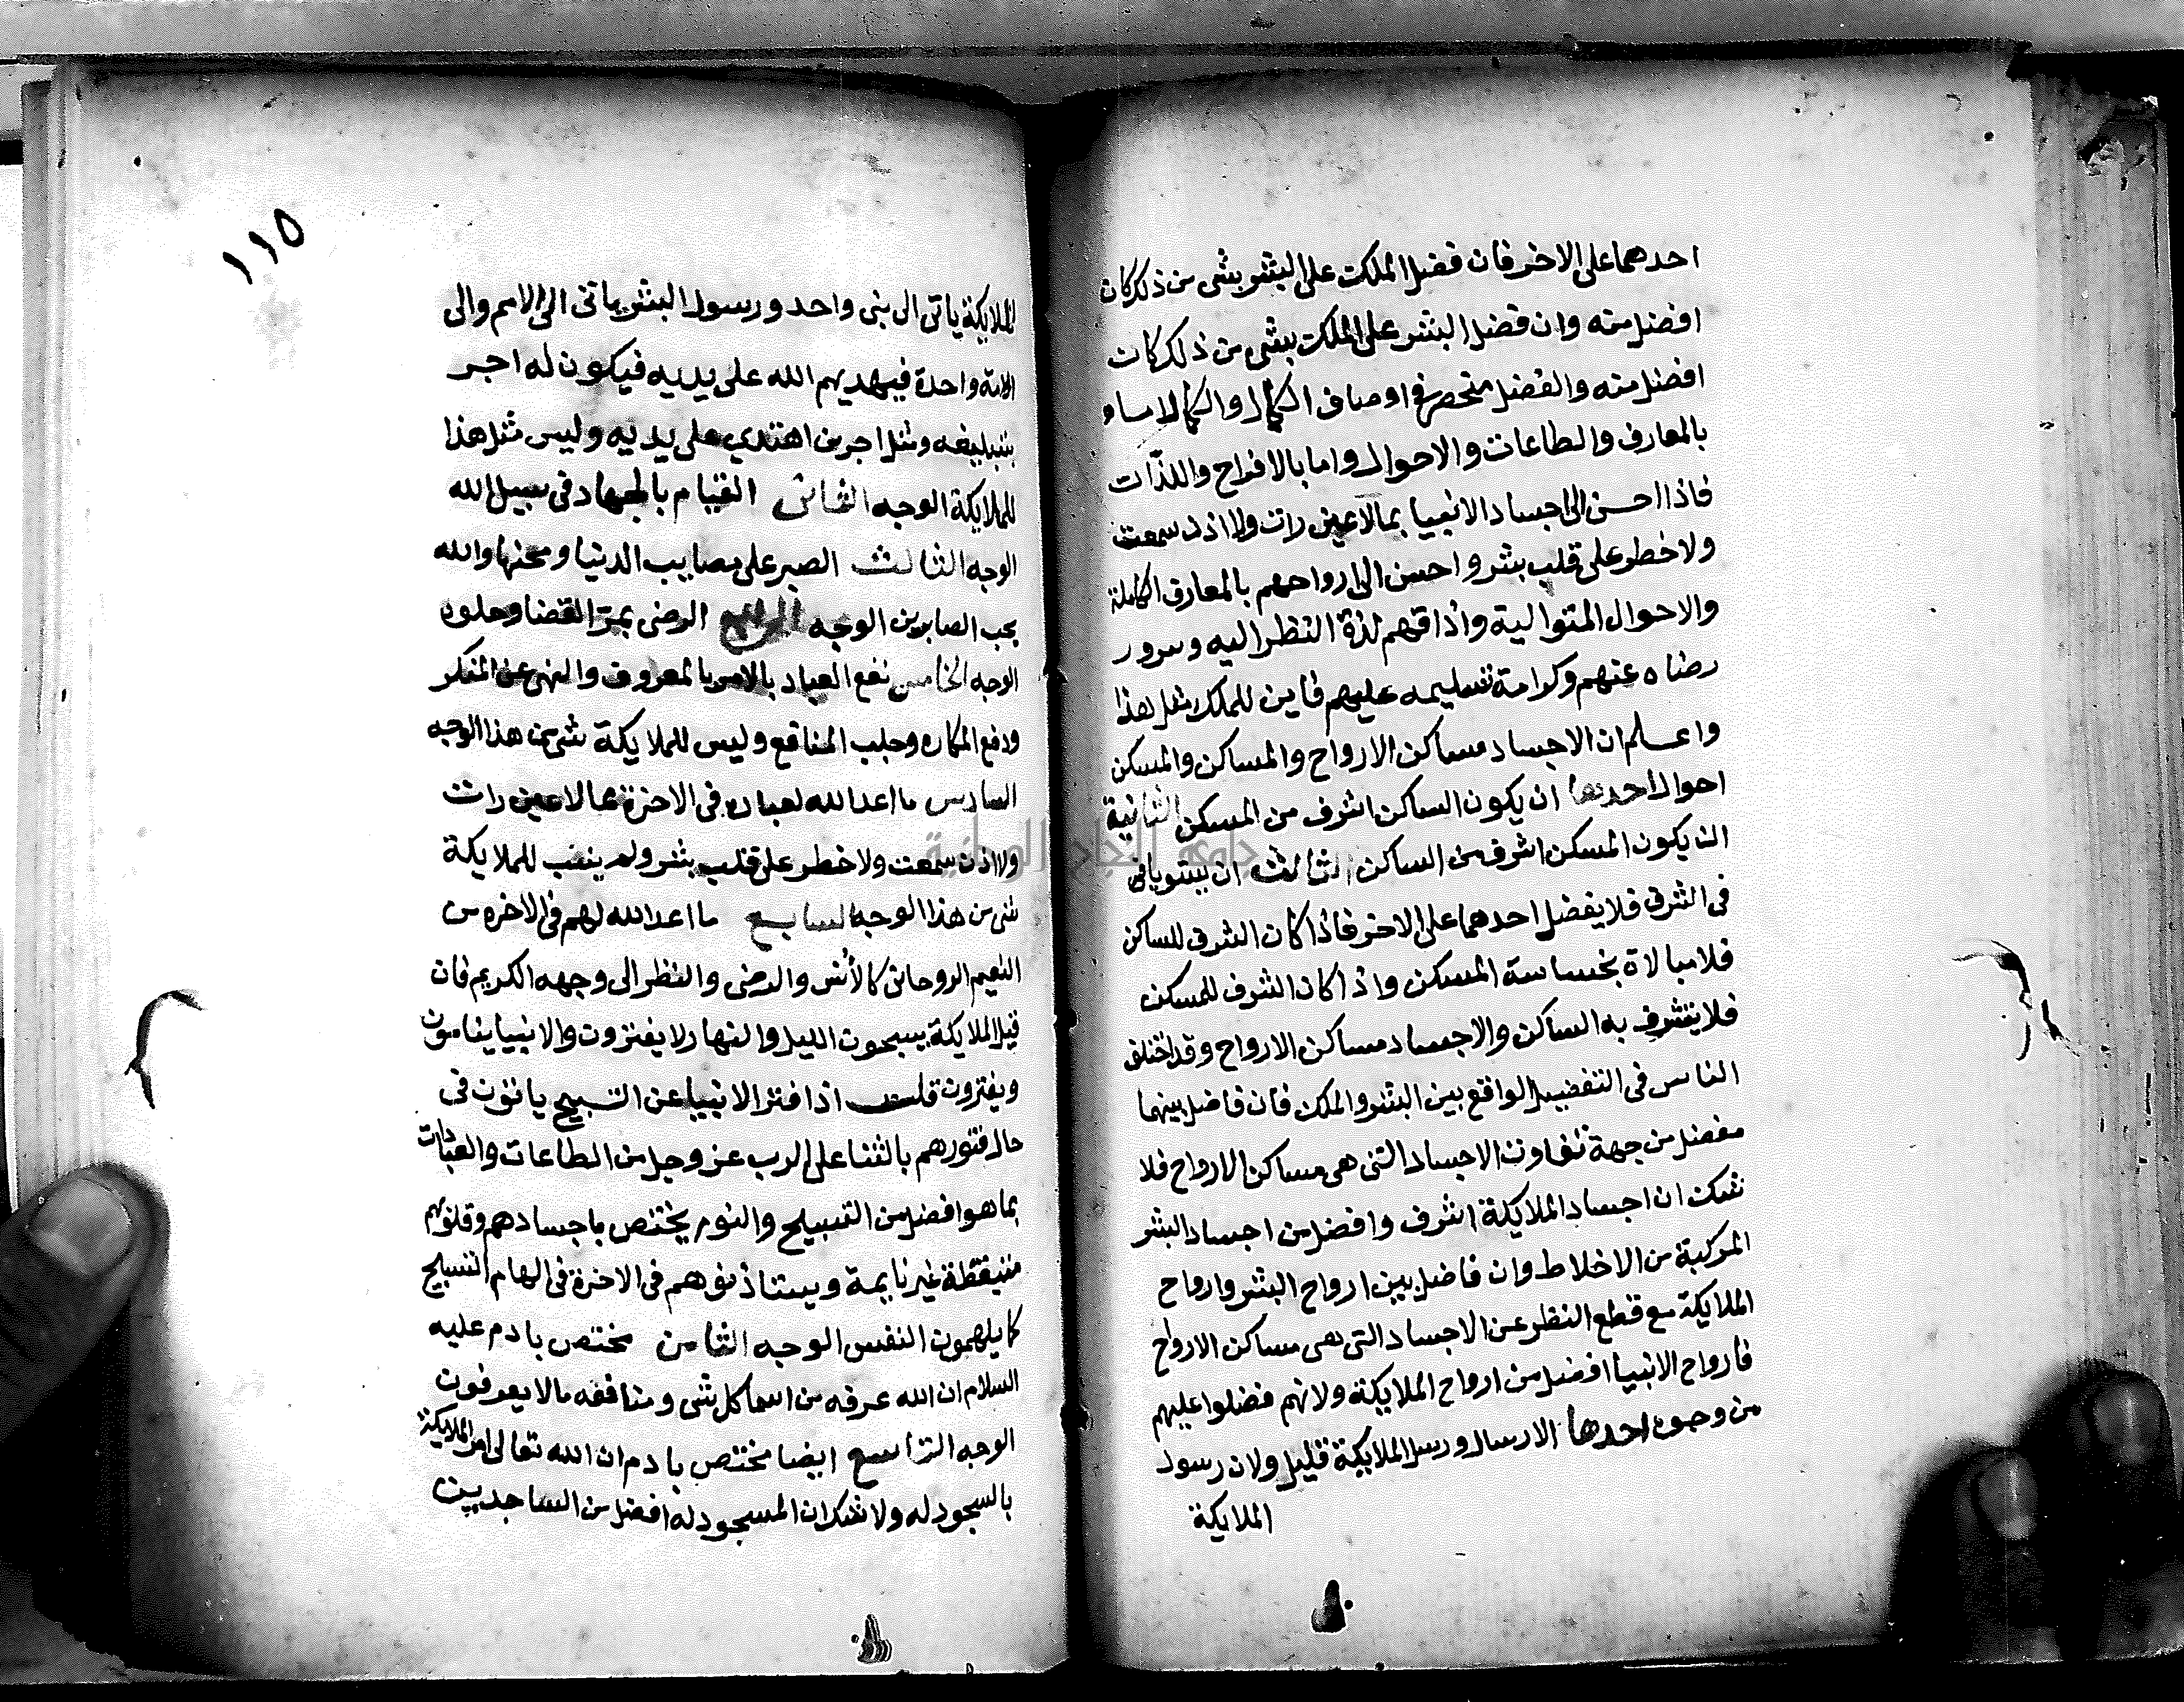 احدهما على الاخر فان فضل الملك على البشر بشى من ذلك كان
افضل منه وان فضل البشر على الملك بشى من ذلك كان
افضل منه والفضل منحصر في اوصاف الكمال والكمال اما
بالمعارف والطاعات والاحوال واما بالافراح واللذّات
فاذا احسن الى اجساد الانبيا بمالاعين رات ولا اذن سمعت
ولاخطر على قلب بشر واحسن الى ارواحهم بالمعارف الكاملة
والاحوال المتوالية واذاقهم لذة النظر اليه وسرور
رضاه عنهم وكرامة تسليمه عليهم فاين للملك مثل هذا
واعلم ان الاجساد مساكن الارواح والمساكن والمسكن
احوال احدها ان يكون الساكن اشرف من المسكن الثانية
ان يكون المسكن اشرف من الساكن الثالث ان يستويا في
في الشرف فلا يفضل احدهما على الاخر فاذا كان الشرف للساكن
فلا مبالاة بخساسة المسكن واذا كان الشرف للمسكن
فلا يتشرف به الساكن والاجساد مساكن الارواح وقد اختلف
الناس في التفضيل الواقع بين البشر والملك فان فاضل بينهما
مفضل من جهة تفاوت الاجساد التى هى مساكن الارواح فلا
شك ان اجساد الملايكة اشرف وافضل من اجساد البشر
المركبة من الاخلاط وان فاضل بين ارواح البشر وارواح
الملايكة مع قطع النظر عن الاجساد التى هى مساكن الارواح
فارواح الانبيا افضل من ارواح الملايكة ولانهم فضلوا عليهم
من وجوه احدها الارسال ورسل الملايكة قليل ولان رسول
الملايكة
١١٥
الملايكة ياتى الى نبى واحد ورسول البشر ياتى الى الامم والى
الامة واحدة فيهديهم الله على يديه فيكون له اجر
بتبليغه ومثل اجر من اهتدي على يديه وليس مثل هذا
للملايكة الوجه الثانى القيام بالجهاد فى سبيل الله
الوجه الثالث الصبر على مصايب الدنيا ومحنها والله
يحب الصابرين الوجه الرابع الرضى بمرّ القضا وحلوه
الوجه الخامس نفع العباد بالامر بالمعروف والنهى عن المنكر
ودفع المكاره وجلب المنافع وليس للملايكة شى من هذا الوجه
السادس ما اعد الله لعباده فى الاخرة مما لاعين رات
ولا اذن سمعت ولاخطر على قلب بشر ولم يثبت للملايكة
شى من هذا الوجه السابع ما اعد الله لهم فى الاخره من
النعيم الروحانى كالأنس والرضى والنظر الى وجهه الكريم فان
قيل الملايكة يسبحون الليل والنهار لا يفترون والانبيا ينامون
ويفترون قلت اذا فتر الانبيا عن التسبيح ياتون فى
حال فتورهم بالثنا على الرب عز وجل من الطاعات والعبادات
بما هو افضل من التسبيح والنوم يختص باجسادهم وقلوبهم
متيقظة غير نايمة وهم فى الاخرة فى الهام التسبيح
كما يلهمون النفس الوجه الثامن مختص بادم عليه
السلام ان الله عرفه من اسما كل شى ومنافعه مالا يعرفون
الوجه التاسع ايضا مختص بادم ان الله تعالى امر الملايكة
بالسجود له ولا شك ان المسجود له افضل من الساجدين